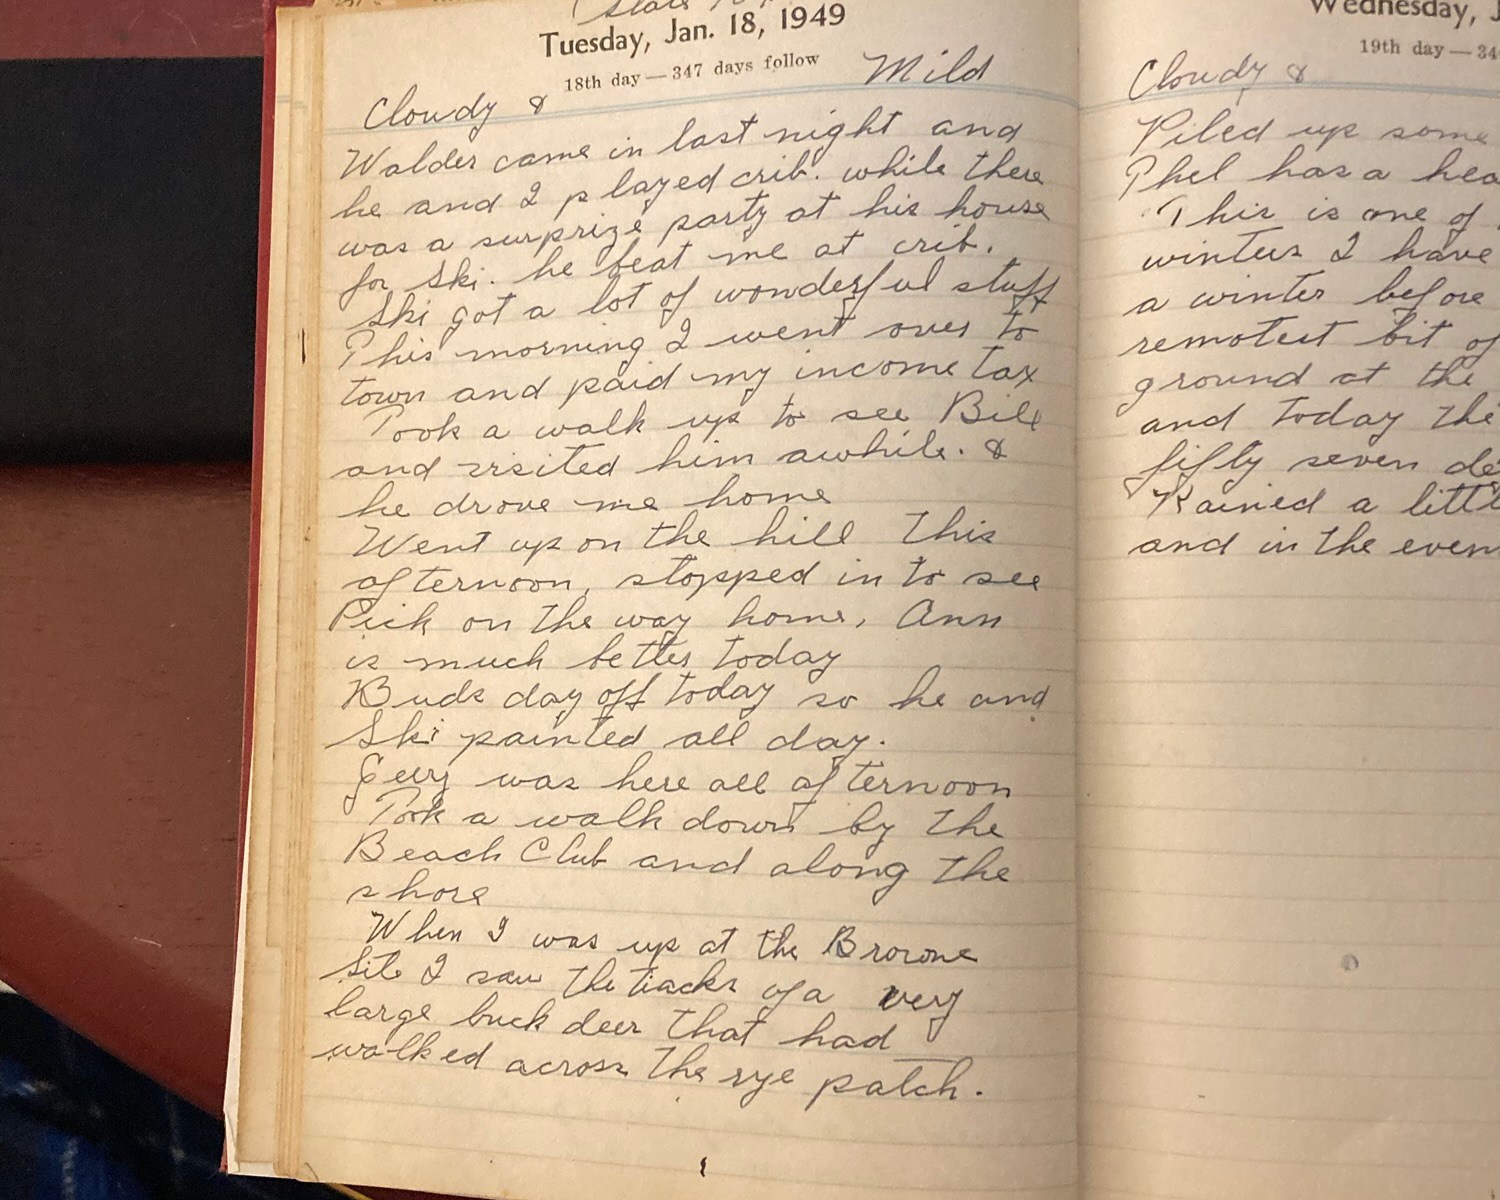 State
Tuesday, Jan. 18, 1949
18th day — 347 days follow
Cloudy & Mild
Walder came in last night and
he and I played crib. while there
was a surprize party at his house
for Ski. he beat me at crib.
Ski got a lot of wonderful stuff
This morning I went over to
town and paid my income tax
Took a walk up to see Bill
and visited him awhile. &
he drove me home
Went up on the hill this
afternoon, stopped in to see
Pick on the way home, Ann
is much better today
Buds day off today so he and
Ski painted all day.
Gerry was here all afternoon
Took a walk down by the
Beach Club and along the
shore
When I was up at the Browne
Site I saw the tracks of a very
large buck deer that had
walked across the rye patch.
Wednesday, J
19th day — 34
Cloudy &
Piled up some
Phel has a hea
This is one of
winters I have
a winter before
remotest bit of
ground at the
and today the
fifty seven de
Rained a little
and in the even